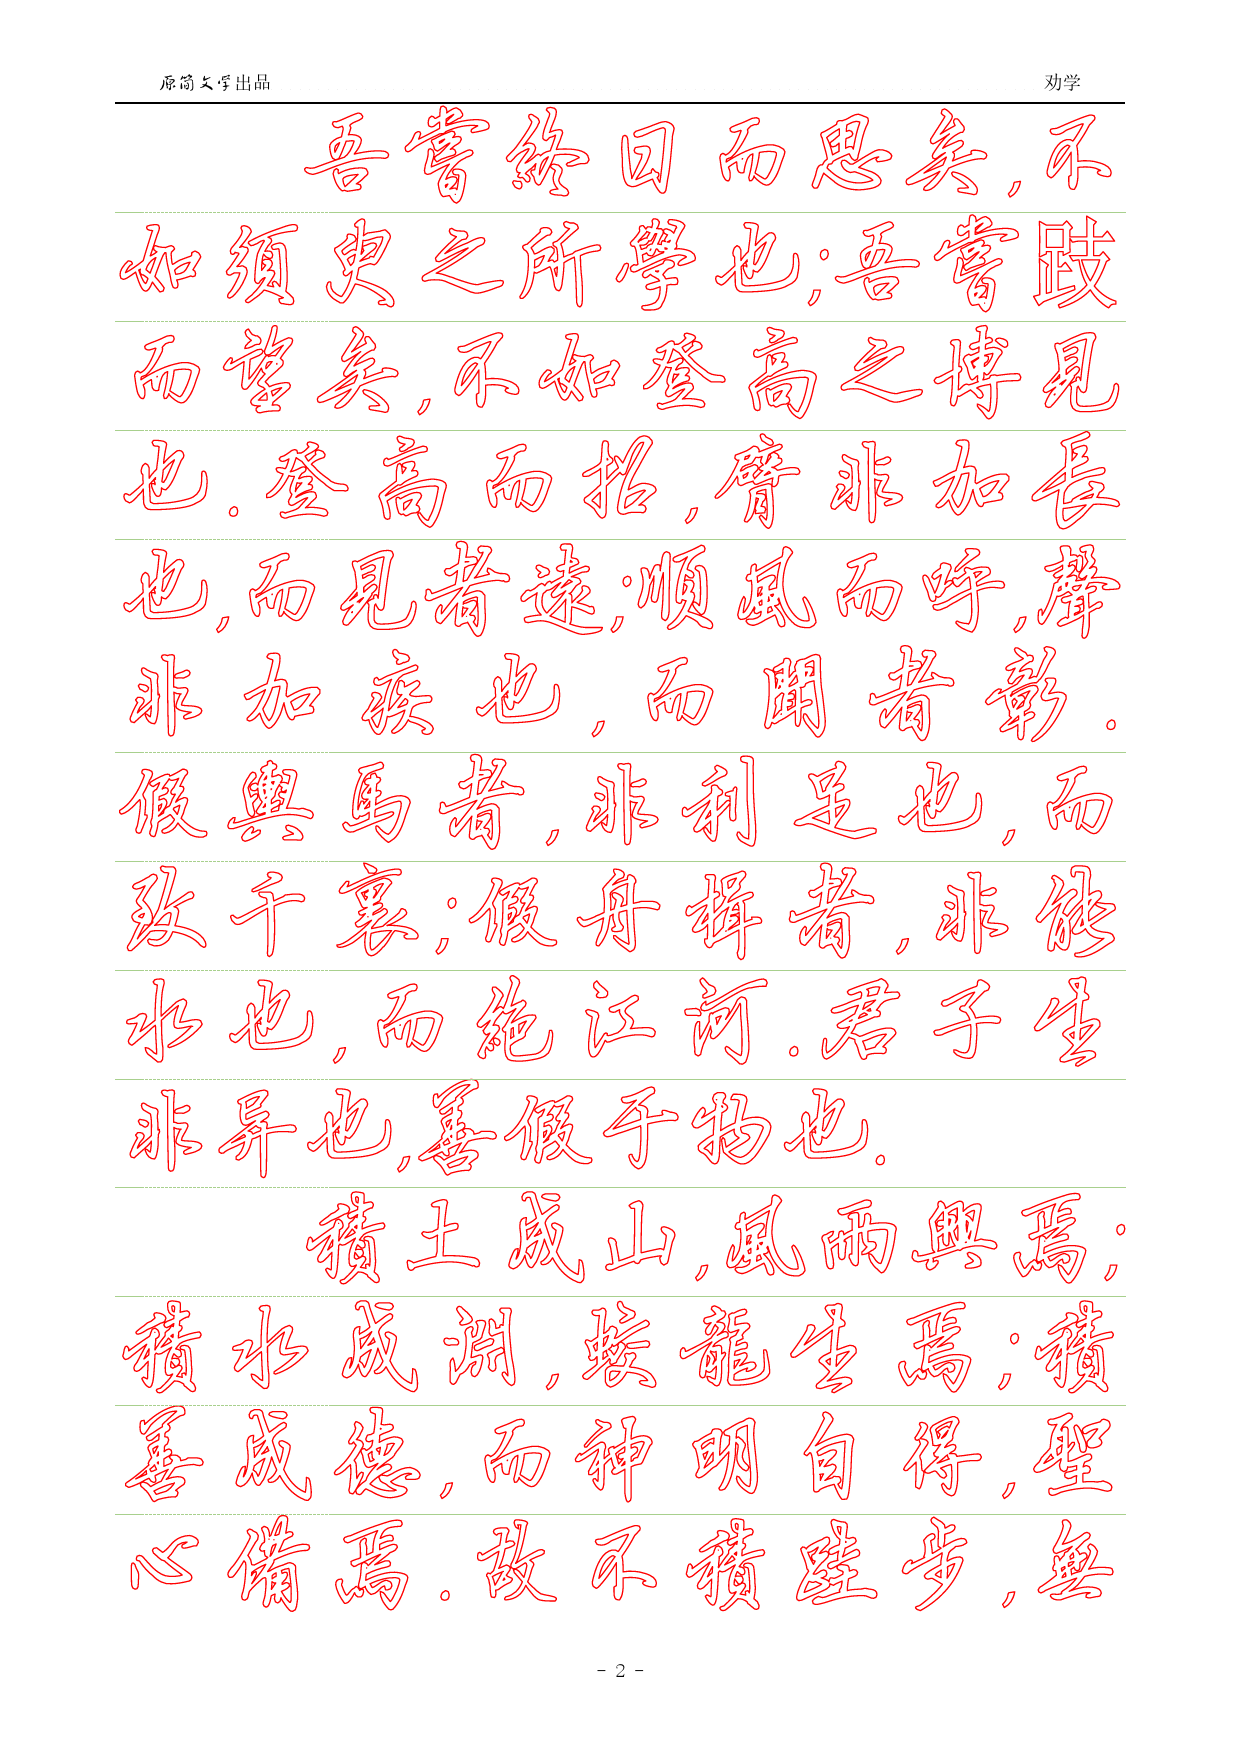 原简文学出品 劝学
吾嘗終日而思矣,不
如須臾之所學也;吾嘗跂
而望矣,不如登高之博見
也.登高而招,臂非加長
也,而見者遠;順風而呼,聲
非加疾也,而聞者彰.
假輿馬者,非利足也,而
致千裏;假舟楫者,非能
水也,而絶江河.君子生
非异也,善假于物也.
積土成山,風雨興焉;
積水成淵,蛟龍生焉;積
善成德,而神明自得,聖
心備焉.故不積跬步,無
- 2 -